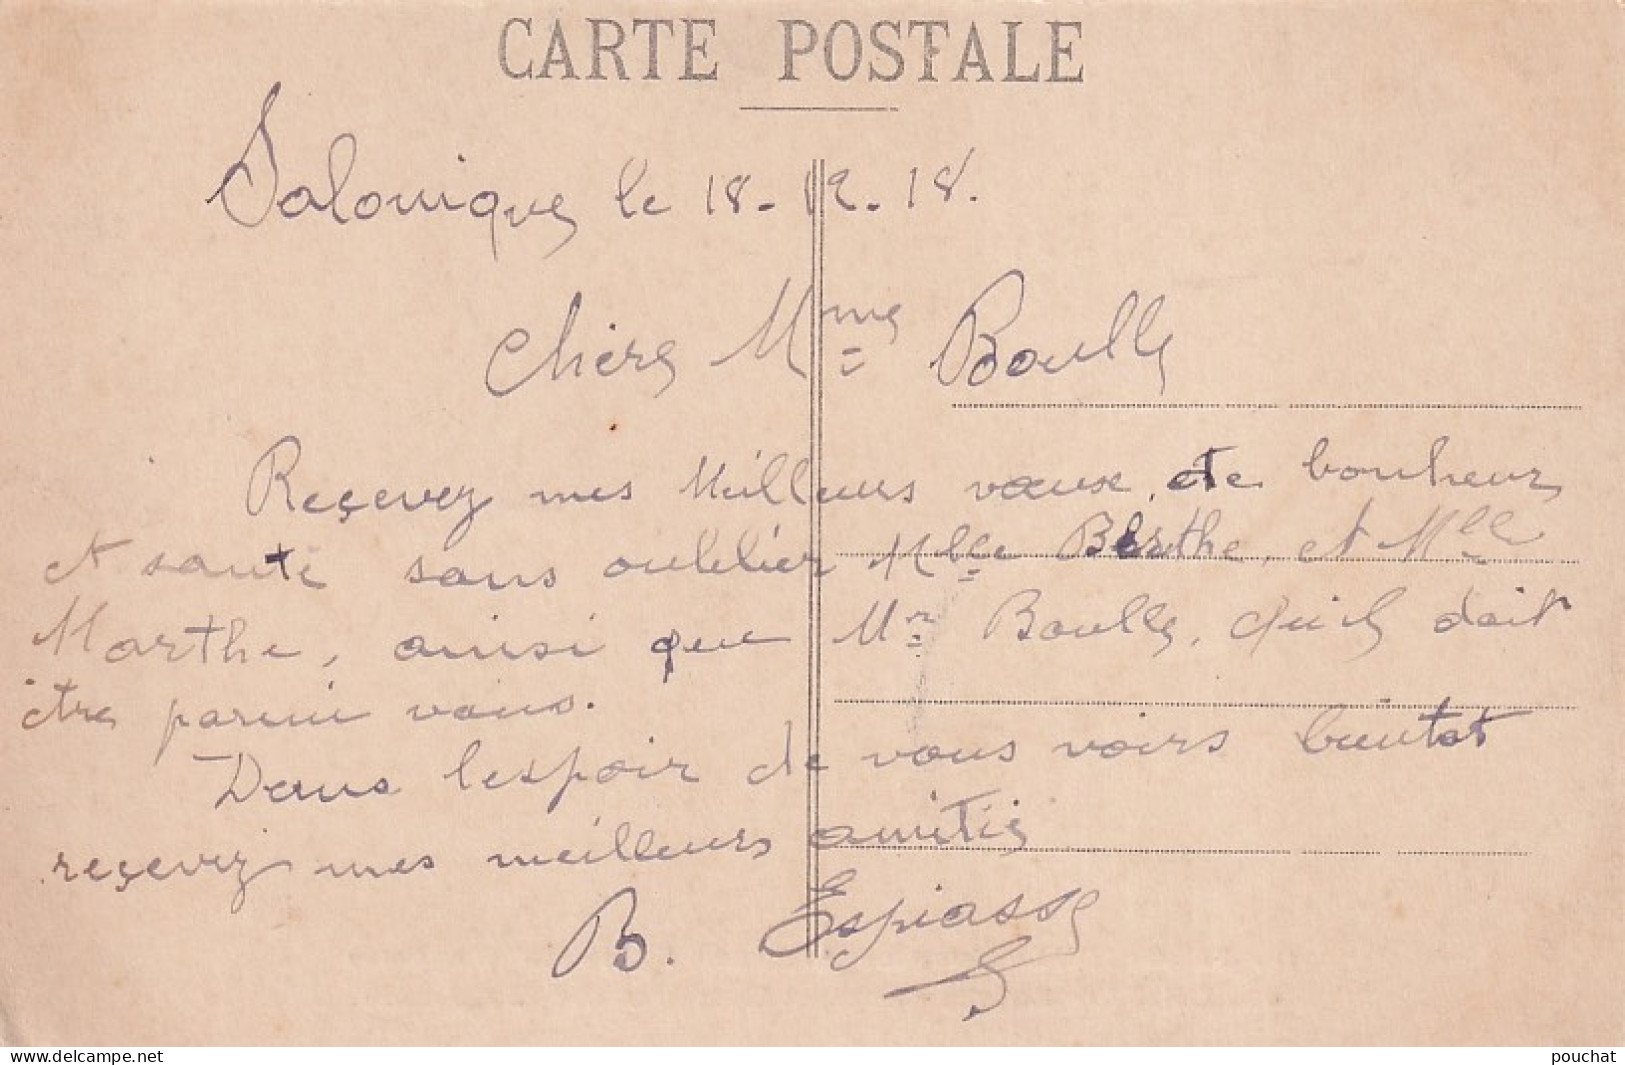 CARTE POSTALE
Salonique le 18-12-18.
Chère Mme Boulle
Reçevez mes Meilleurs voeux, de bonheur
et santé sans oublier Mlle Berthe, et Mlle
Marthe, ainsi que Mr Boulle, qu'il doit
être parmi vous.
Dans l'espoir de vous voirs bientot
reçevez mes meilleurs amitié
B. Espiasse
www.delcampe.net
pouchat